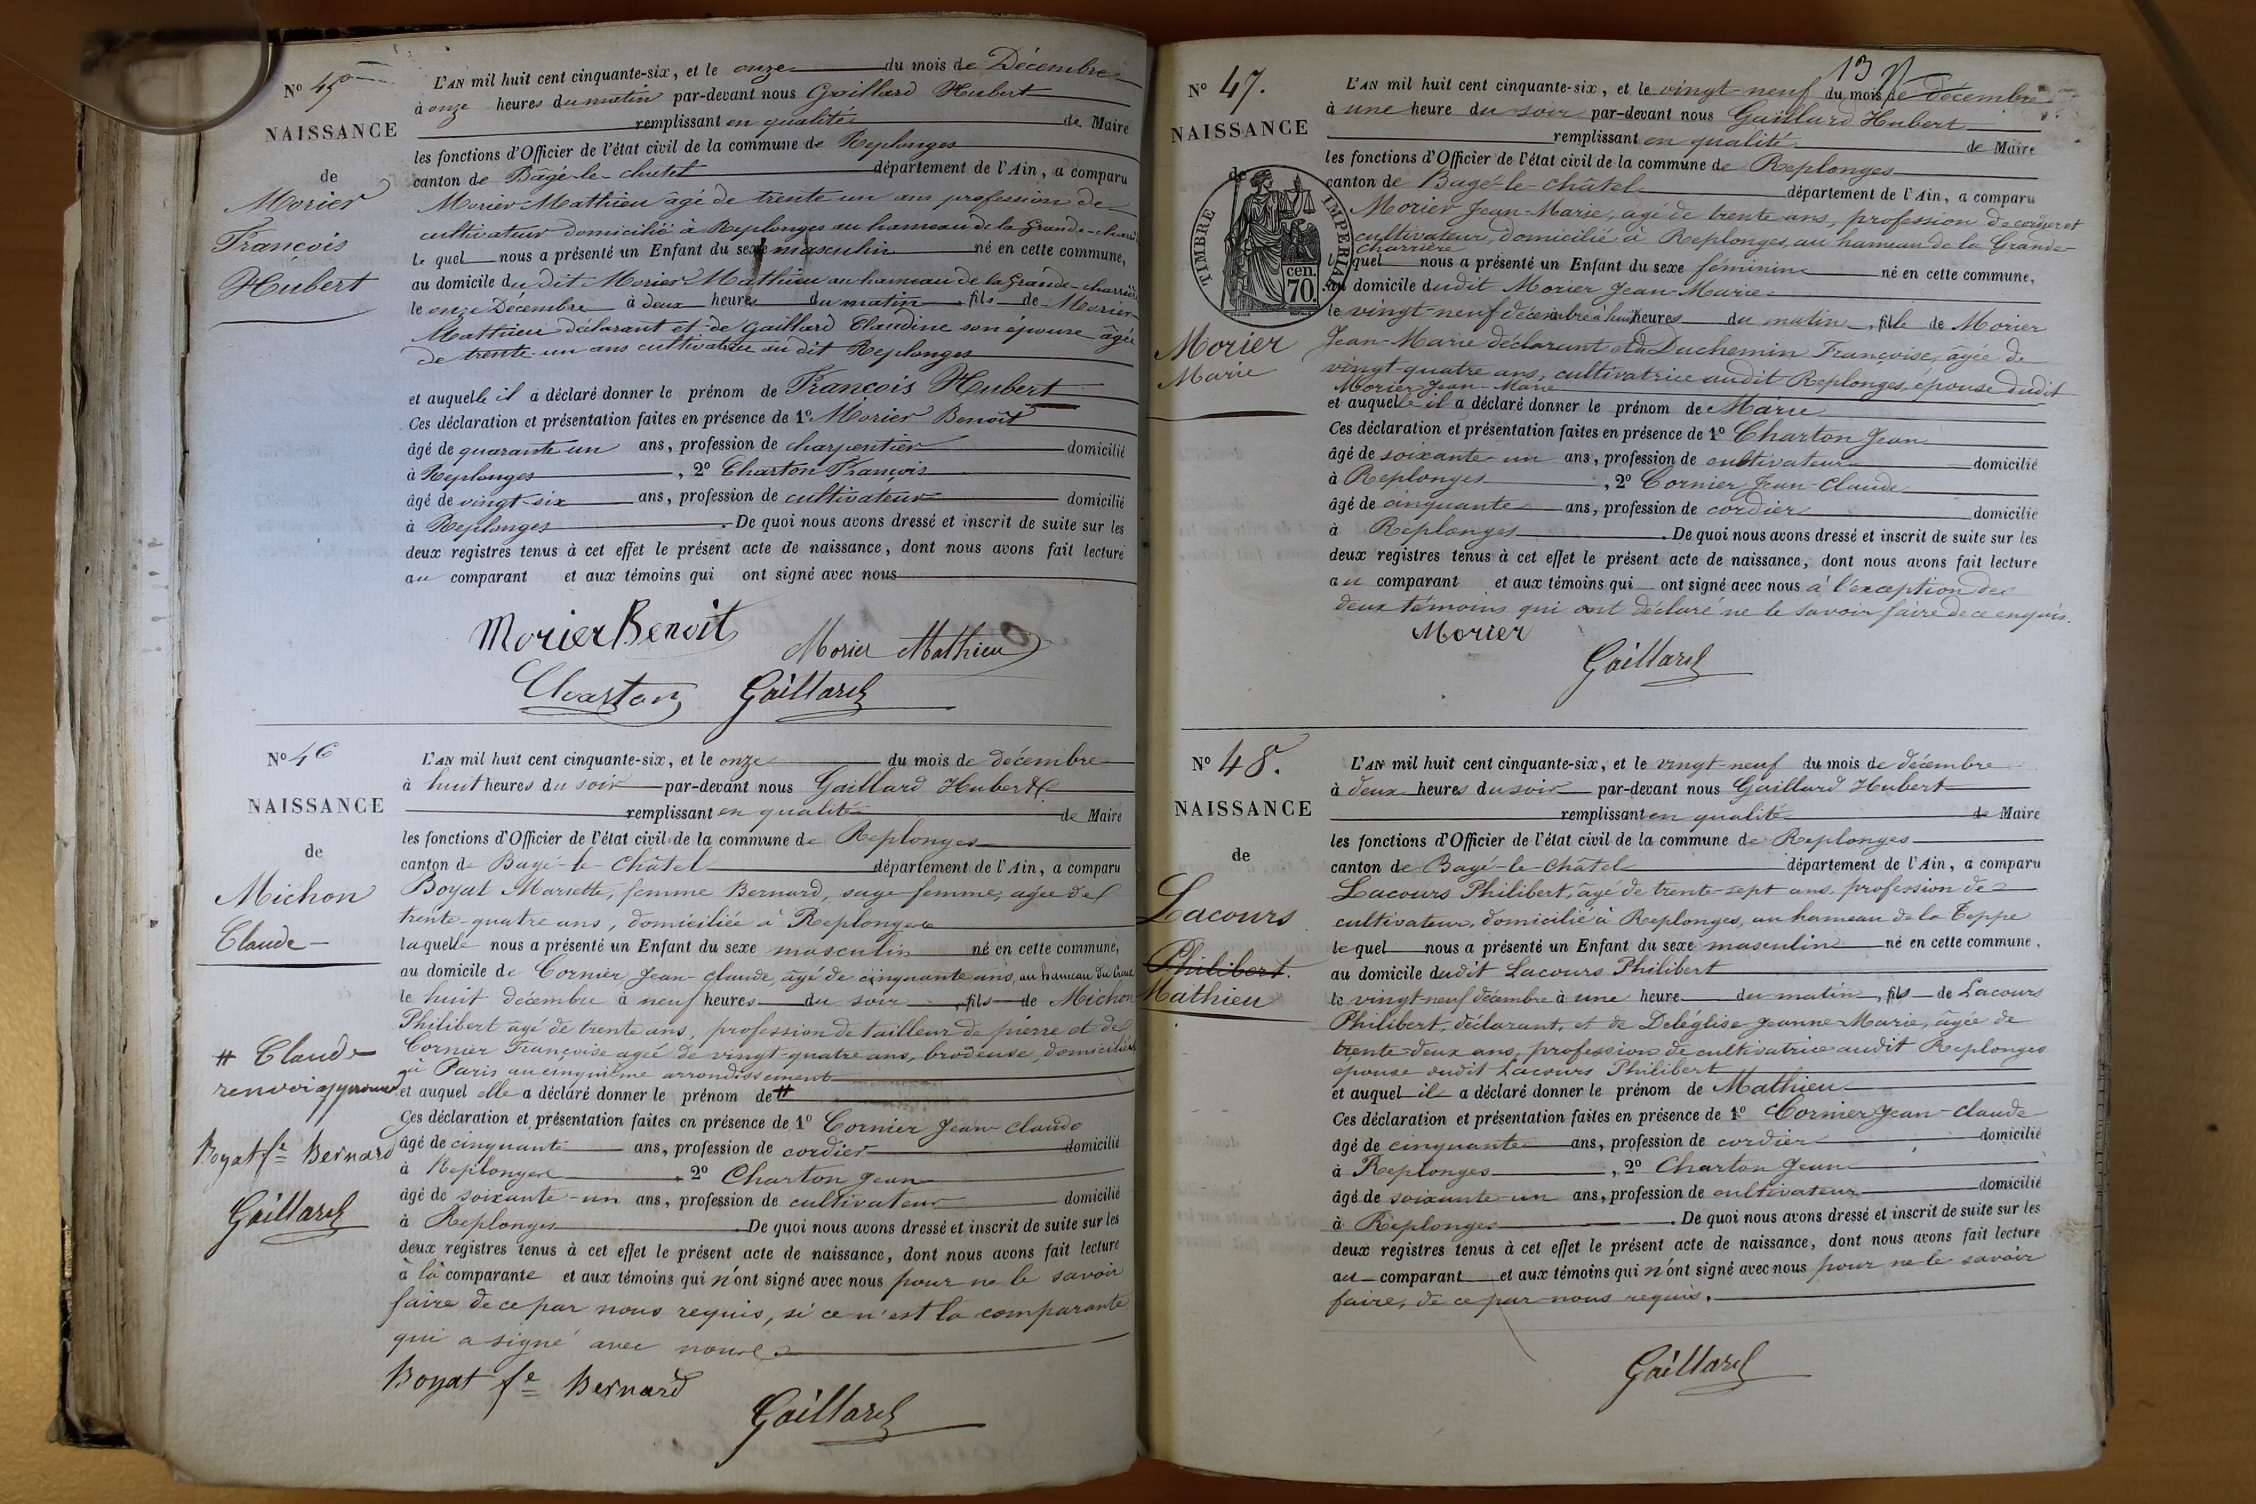 N° 45
NAISSANCE
de
Morier
François
Hubert
L'AN mil huit cent cinquante-six, et le onze du mois de Décembre
à onze heures du matin par-devant nous Gaillard Hubert
remplissant en qualité de Maire
les fonctions d'Officier de l'état civil de la commune de Replonges
canton de Bâgé-le-chatel département de l'Ain, a comparu
Morier Mathieu âgé de trente un ans profession de
cultivateur domicilié à Replonges au hameau de la Grande-charrière
le quel nous a présenté un Enfant du sexe masculin né en cette commune,
au domicile du dit Morier Mathieu au hameau de la Grande-charrière
le onze Décembre à deux heures du matin, fils de Morier
Mathieu déclarant et de Gaillard Claudine son épouse âgée
de trente-un ans cultivatrice au dit Replonges
et auquelle il a déclaré donner le prénom de François Hubert
Ces déclaration et présentation faites en présence de 1° Morier Benoît
âgé de quarante un ans, profession de charpentier domicilié
à Replonges, 2° Charton François
âgé de vingt-six ans, profession de cultivateur domicilié
à Replonges. De quoi nous avons dressé et inscrit de suite sur les
deux registres tenus à cet effet le présent acte de naissance, dont nous avons fait lecture
au comparant et aux témoins qui ont signé avec nous
Morier Benoit Morier Mathieu
Charton Gaillard
N° 46
NAISSANCE
de
Michon
Claude
# Claude
renvoi approuvé
Boyat fe Bernard
Gaillard
L'AN mil huit cent cinquante-six, et le onze du mois de décembre
à huit heures du soir par-devant nous Gaillard Hubert
remplissant en qualité de Maire
les fonctions d'Officier de l'état civil de la commune de Replonges
canton de Bagé-le-Châtel département de l'Ain, a comparu
Boyat Mariette, femme Bernard, sage-femme, agée de
trente-quatre ans, domiciliée à Replonges
laquelle nous a présenté un Enfant du sexe masculin né en cette commune,
au domicile de Cornier Jean-Claude, âgé de cinquante ans, au hameau du Creux
le huit décembre à neuf heures du soir, fils de Michon
Philibert agé de trente ans, profession de tailleur de pierre et de
Cornier Françoise agée de vingt-quatre ans, brodeuse, domiciliés
à Paris au cinquième arrondissement
et auquel elle a déclaré donner le prénom de #
Ces déclaration et présentation faites en présence de 1° Cornier Jean-Claude
âgé de cinquante ans, profession de cordier domicilié
à Replonges, 2° Charton Jean
âgé de soixante-un ans, profession de cultivateur domicilié
à Replonges De quoi nous avons dressé et inscrit de suite sur les
deux registres tenus à cet effet le présent acte de naissance, dont nous avons fait lecture
à la comparante et aux témoins qui n'ont signé avec nous pour ne le savoir
faire de ce par nous requis, si ce n'est la comparante
qui a signé avec nous
Boyat fe Bernard
Gaillard
13
N° 47.
NAISSANCE
de
TIMBRE IMPERIAL
70. cen.
Morier
Marie
L'AN mil huit cent cinquante-six, et le vingt-neuf du mois de décembre
à une heure du soir par-devant nous Gaillard Hubert
remplissant en qualité de Maire
les fonctions d'Officier de l'état civil de la commune de Replonges
canton de Bagé-le-châtel département de l'Ain, a comparu
Morier Jean-Marie, agé de trente ans, profession de et
cultivateur, domicilié à Replonges, au hameau de la Grande-
charrière
lequel nous a présenté un Enfant du sexe féminin né en cette commune,
au domicile dudit Morier Jean-Marie
le vingt-neuf décembre à huit heures du matin, fille de Morier
Jean-Marie déclarant et de Duchemin Françoise, âgée de
vingt-quatre ans, cultivatrice audit Replonges, épouse dudit
Morier Jean-Marie
et auquelle il a déclaré donner le prénom de Marie
Ces déclaration et présentation faites en présence de 1° Charton Jean
âgé de soixante-un ans, profession de cultivateur domicilié
à Replonges, 2° Cornier Jean-Claude
âgé de cinquante ans, profession de cordier domicilié
à Replonges. De quoi nous avons dressé et inscrit de suite sur les
deux registres tenus à cet effet le présent acte de naissance, dont nous avons fait lecture
au comparant et aux témoins qui ont signé avec nous à l'exception des
deux témoins qui ont déclaré ne le savoir faire de ce enquis.
Morier
Gaillard
N° 48.
NAISSANCE
de
Lacours
Philibert.
Mathieu
L'AN mil huit cent cinquante-six, et le vingt-neuf du mois de décembre
à deux heures du soir par-devant nous Gaillard Hubert
remplissant en qualité de Maire
les fonctions d'Officier de l'état civil de la commune de Replonges
canton de Bagé-le-Châtel département de l'Ain, a comparu
Lacours Philibert, âgé de trente-sept ans profession de
cultivateur, domicilié à Replonges, au hameau de la Teppe
lequel nous a présenté un Enfant du sexe masculin né en cette commune,
au domicile dudit Lacours Philibert
le vingt-neuf décembre à une heure du matin, fils de Lacours
Philibert, déclarant, et de Deléglise Jeanne-Marie, âgée de
trente-deux ans, profession de cultivatrice audit Replonges
épouse dudit Lacours Philibert
et auquel il a déclaré donner le prénom de Mathieu
Ces déclaration et présentation faites en présence de 1° Cornier Jean-Claude
âgé de cinquante ans, profession de cordier domicilié
à Replonges, 2° Charton Jean
âgé de soixante-un ans, profession de cultivateur domicilié
à Replonges. De quoi nous avons dressé et inscrit de suite sur les
deux registres tenus à cet effet le présent acte de naissance, dont nous avons fait lecture
au comparant et aux témoins qui n'ont signé avec nous pour ne le savoir
faire, de ce par nous requis.
Gaillard